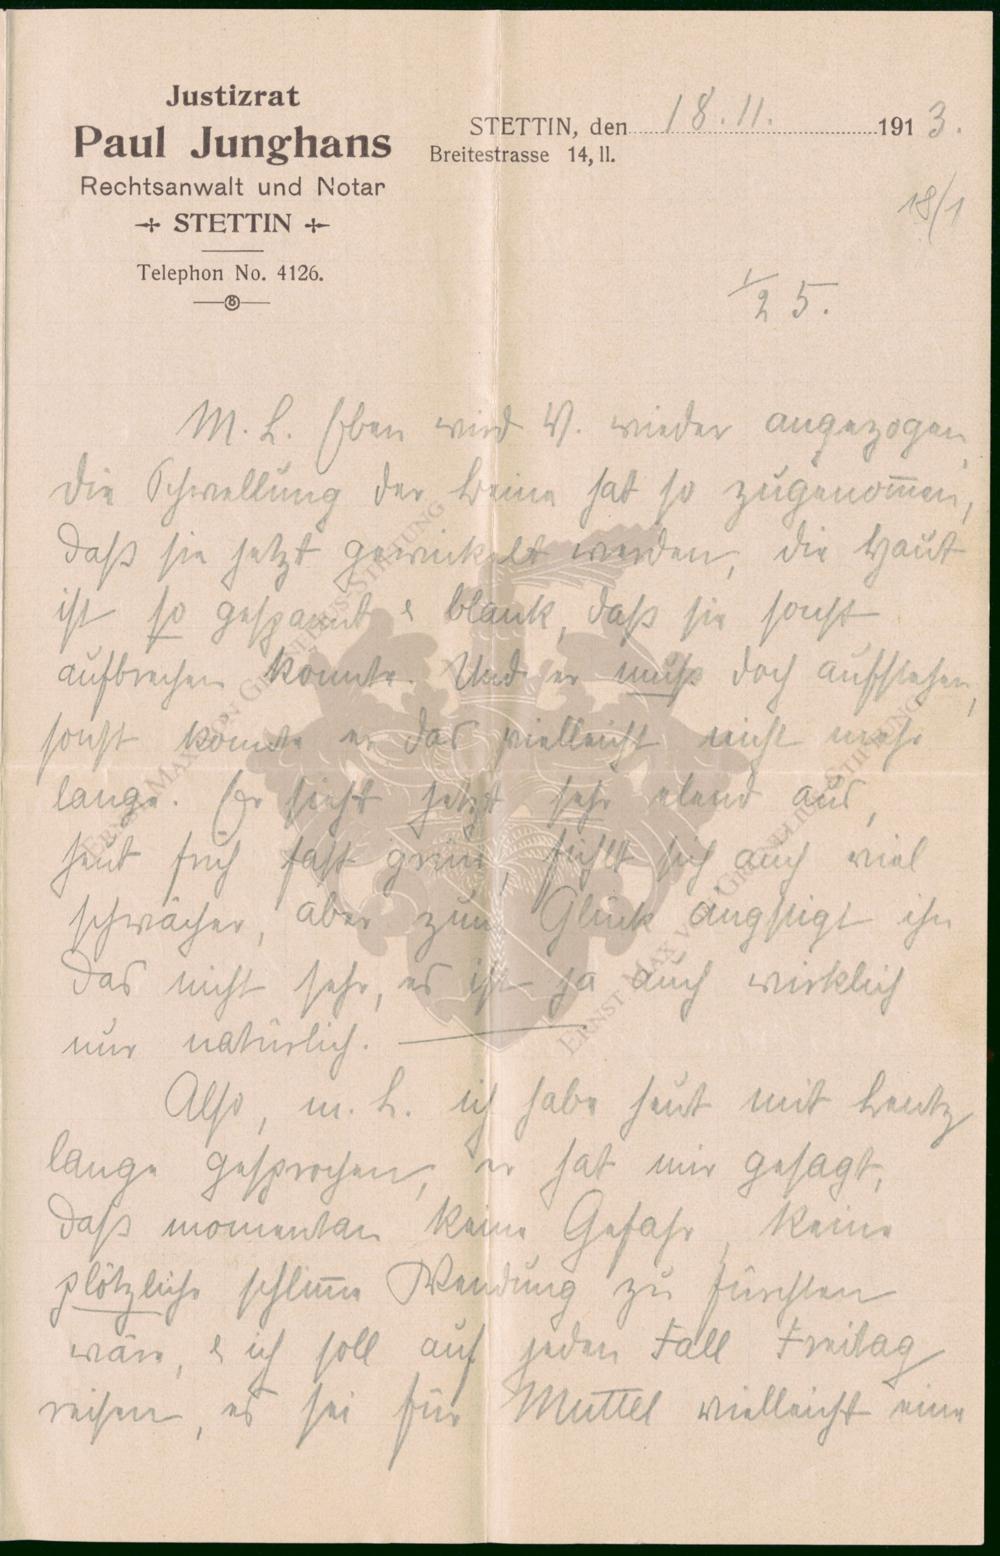 Justizrat
Paul Junghans
Rechtsanwalt und Notar
STETTIN
Telephon No. 4126.
STETTIN, den 18.11. 1913.
Breitestrasse 14, II.
18/1
1/2 5.
M. L. Eben wird V. wieder angezogen,
die Schwellung der Beine hat so zugenom̅en,
daß sie jetzt gewickelt werden, die Haut
ist so gespannt & blank, daß sie sonst
aufbrechen könnte. Und er muß doch aufstehen,
sonst könnte er das vielleicht nicht mehr
lange. Er sieht jetzt sehr elend aus,
heut früh fast grün, fühlt sich auch viel
schwächer, aber zum Glück ängstigt ihn
das nicht sehr, es ist ja auch wirklich
nur natürlich. —
Also, m. L. ich habe heut mit Bentz
lange gesprochen, er hat mir gesagt,
daß momentan keine Gefahr, keine
plötzliche schlim̅e Wendung zu fürchten
wäre, & ich soll auf jeden Fall Freitag
reisen, es sei für Muttel vielleicht eine
ERNST MAX VON GRUNELIUS-STIFTUNG
ERNST MAX VON GRUNELIUS-STIFTUNG